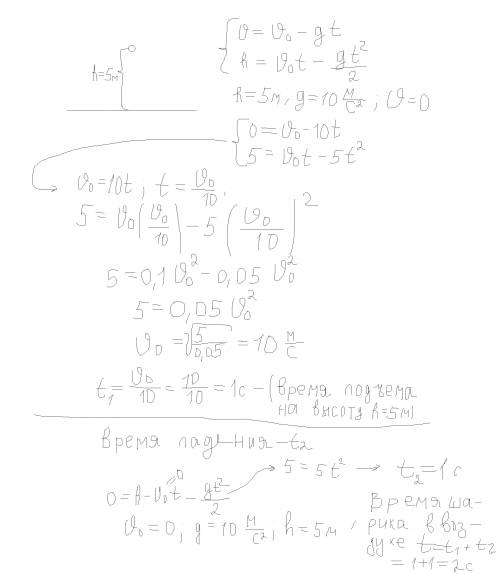 h=5м
υ = υ₀ - gt
h = υ₀t - gt²/2
h=5м, g=10 м/с² ; υ=0
0=υ₀-10t
5=υ₀t-5t²
υ₀=10t ; t=υ₀/10 ;
5=υ₀(υ₀/10)-5(υ₀/10)²
5=0,1υ₀²-0,05υ₀²
5=0,05υ₀²
υ₀=√(5/0,05)=10 м/с
t₁=υ₀/10=10/10=1с-(время подъема
на высоту h=5м)
время падения-t₂
0=h-υ₀t-gt²/2 → 5=5t² → t₂=1с
υ₀t=0
υ₀=0, g=10 м/с², h=5м,
время ша-
рика в воз-
духе t=t₁+t₂
=1+1=2с